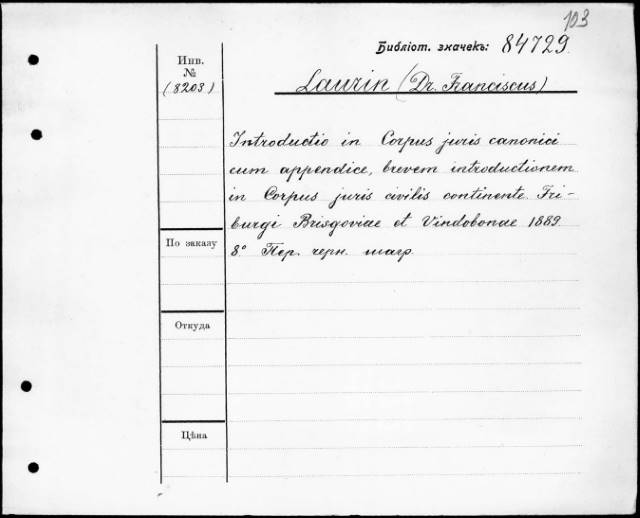 103
Библіот. значекъ: 84729
Инв.
№
(8203)
Laurin (Dr. Franciscus)
Introductio in Corpus juris canonici
cum appendice, brevem introductionem
in Corpus juris civilis continente. Fri-
burgi Brisgoviae et Vindobonae 1889.
8° Пер. черн. шагр.
По заказу
Откуда
Цѣна